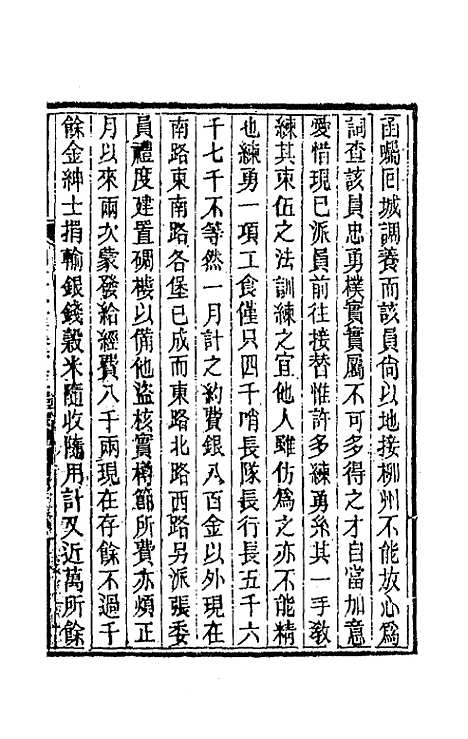 函囑囘城調養而該員尙以地接柳州不能放心爲
詞查該員忠勇樸實實屬不可多得之才自當加意
愛惜現已派員前往接替惟許多練勇糸其一手敎
練其束伍之法訓練之宜他人雖仿爲之亦不能精
也練勇一項工食僅只四千哨長隊長行長五千六
千七千不等然一月計之約費銀八百金以外現在
南路東南路各堡已成而東路北路西路另派張委
員禮度建置碉樓以備他盜核實樽節所費亦頗正
月以來兩次蒙發給經費八千兩現在存餘不過千
餘金紳士捐輸銀錢穀米隨收隨用計又近萬所餘